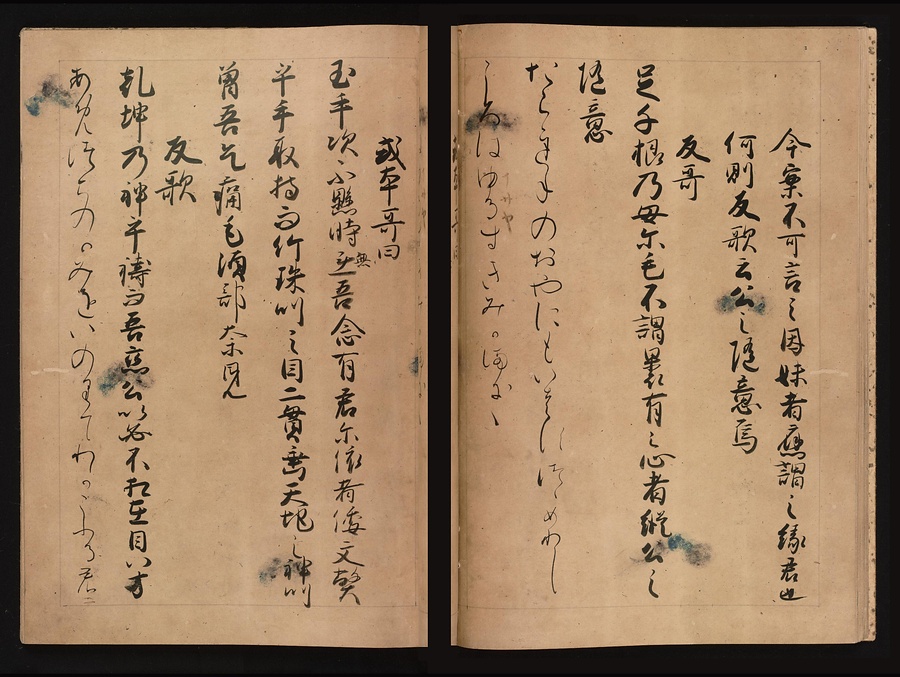 今案不可言之因妹者應謂之縁君也
何則反歌云公之随意焉
反哥
足千根乃母尓毛不謂裹有之心者縦公之
随意
たらちねのおやにもいはすつゝめりし
こゝろはゆるすきみかまにゝ
或本哥曰
玉手次不懸時無吾念有君尓依者倭文幣
乎手取持而竹珠叫之自二貫垂天地之神叫
曽吾乞痛毛須部奈見
反歌
乾坤乃神乎禱而吾戀公以必不相在目八方
あめつちのかみをいのりてわかこふる君に